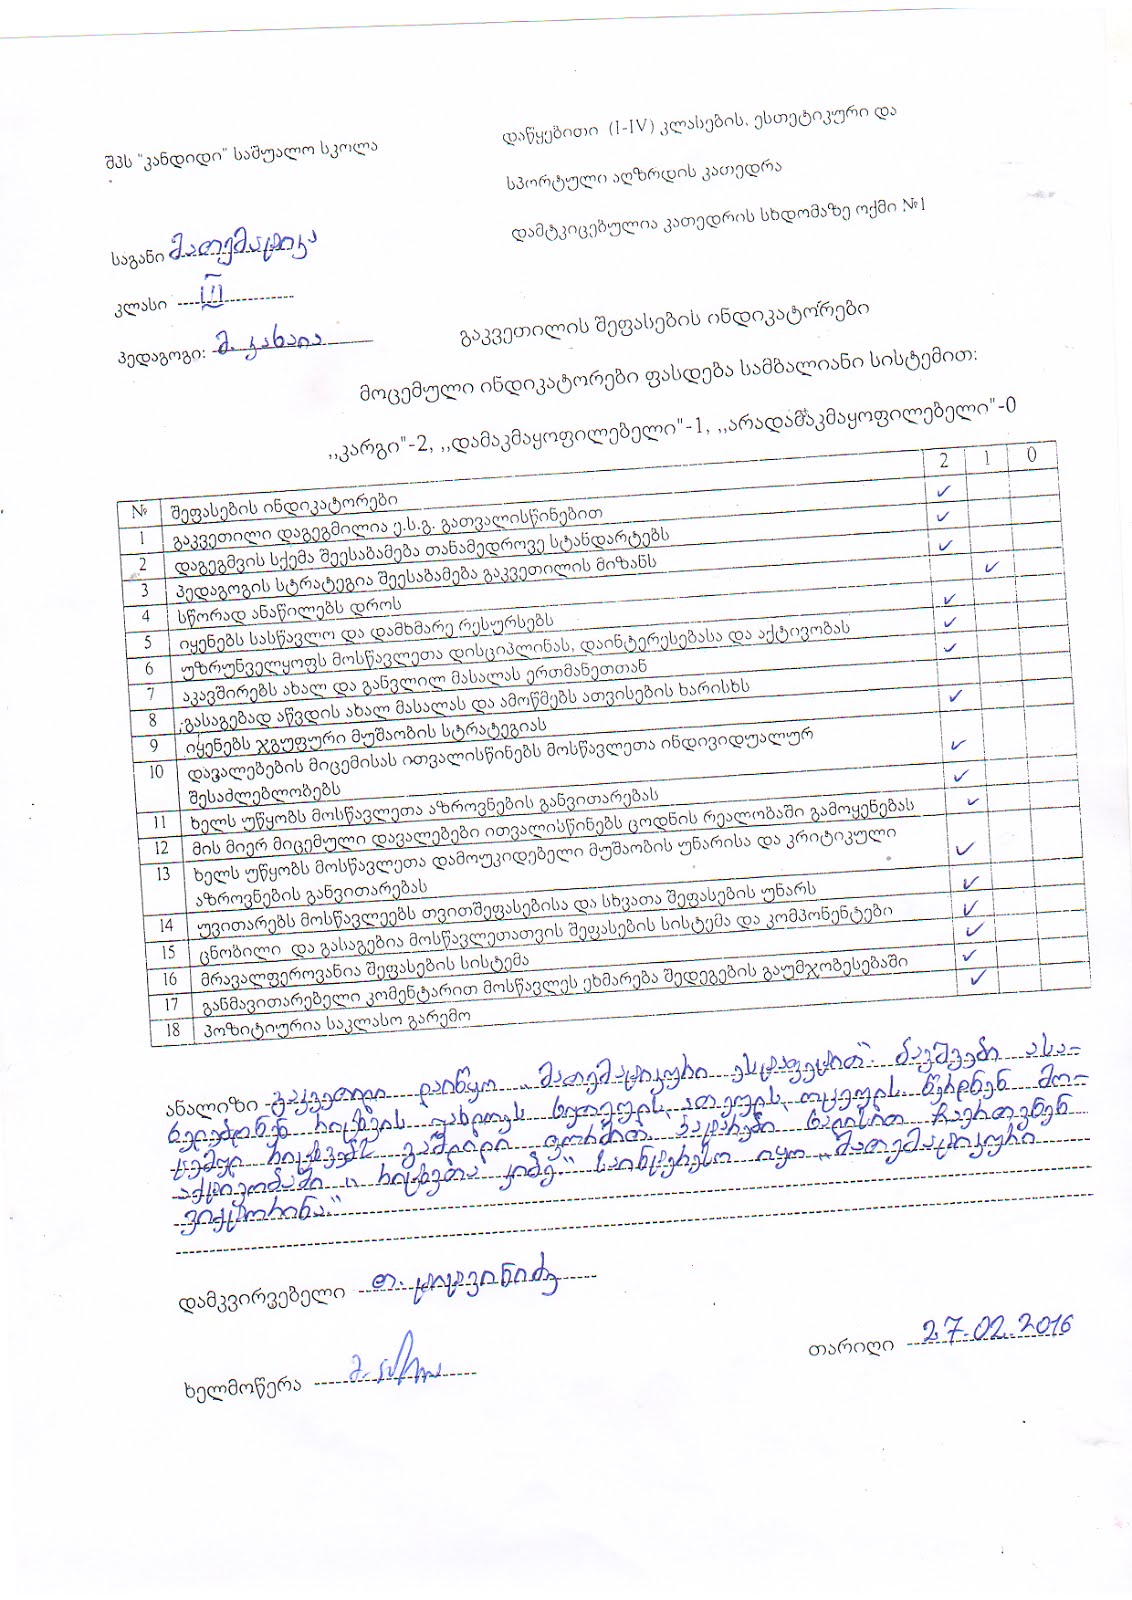 შპს "კანდიდი" საშუალო სკოლა
დაწყებითი (I-IV) კლასების, ესთეტიკური და
სპორტული აღზრდის კათედრა
დამტკიცებულია კათედრის სხდომაზე ოქმი №1
საგანი მათემატიკა
კლასი III
პედაგოგი: მ. კახაია
გაკვეთილის შეფასების ინდიკატორები
მოცემული ინდიკატორები ფასდება სამბალიანი სისტემით:
,,კარგი"-2, ,,დამაკმაყოფილებელი"-1, ,,არადამაკმაყოფილებელი"-0
№ შეფასების ინდიკატორები 2 1 0
1 გაკვეთილი დაგეგმილია ე.ს.გ. გათვალისწინებით ✓
2 დაგეგმვის სქემა შეესაბამება თანამედროვე სტანდარტებს ✓
3 პედაგოგის სტრატეგია შეესაბამება გაკვეთილის მიზანს ✓
4 სწორად ანაწილებს დროს ✓
5 იყენებს სასწავლო და დამხმარე რესურსებს ✓
6 უზრუნველყოფს მოსწავლეთა დისციპლინას, დაინტერესებასა და აქტივობას ✓
7 აკავშირებს ახალ და განვლილ მასალას ერთმანეთთან ✓
8 გასაგებად აწვდის ახალ მასალას და ამოწმებს ათვისების ხარისხს
9 იყენებს ჯგუფური მუშაობის სტრატეგიას ✓
10 დავალებების მიცემისას ითვალისწინებს მოსწავლეთა ინდივიდუალურ
შესაძლებლობებს ✓
11 ხელს უწყობს მოსწავლეთა აზროვნების განვითარებას ✓
12 მის მიერ მიცემული დავალებები ითვალისწინებს ცოდნის რეალობაში გამოყენებას ✓
13 ხელს უწყობს მოსწავლეთა დამოუკიდებელი მუშაობის უნარისა და კრიტიკული
აზროვნების განვითარებას ✓
14 უვითარებს მოსწავლეებს თვითშეფასებისა და სხვათა შეფასების უნარს ✓
15 ცნობილი და გასაგებია მოსწავლეთათვის შეფასების სისტემა და კომპონენტები ✓
16 მრავალფეროვანია შეფასების სისტემა ✓
17 განმავითარებელი კომენტარით მოსწავლეს ეხმარება შედეგების გაუმჯობესებაში ✓
18 პოზიტიურია საკლასო გარემო ✓
ანალიზი გაკვეთილი დაიწყო „მათემატიკური ესტაფეტით". ბავშვები ასა-
ხელებდნენ რიცხვის ათეულის წერდნენ მო-
ცემულ რიცხვებს გაშლილი ფორმით. ხალისით ჩაერთვნენ
აქტივობაში „რიცხვთა კიბე." საინტერესო იყო „მათემატიკური
ვიქტორინა."
დამკვირვებელი
ხელმოწერა
თარიღი 27.02.2016